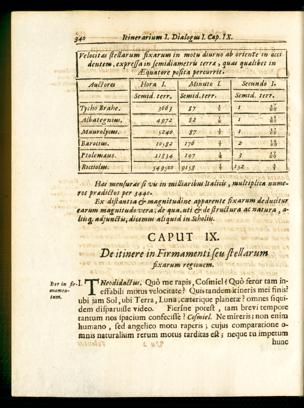 340 Itinerarium I. Dialogus I. Cap. IX.
Velocitas stellarum fixarum in motu diurno ab oriente in occi
dentem, expressa in semidiametris terræ, quas quælibet in
Æquatore posita percurrit.
Auctores Hora I. Minuto I. Secundo I.
Semid. terr. Semid. terr. Semid. terr.
Tycho Brahe. 3663
Albategnius. 4972 82
Maurolycus. 5240 87
Barocius. 10552 176 2
Ptolemæus. 11834 197 3
Ricciolus. 152
Hæ mensuræ si vis in milliaribus Italicis, multiplica nume-
ros prædictos per 3440.
Ex distantia & magnitudine apparente fixarum deducitur
earum magnitudo vera; de qua, uti & de structura ac natura, a-
liisq. adjunctis, dicemus aliquid in Scholiis.
CAPUT IX.
De itinere in Firmamenti seu stellarum
fixarum regionem.
Iter in fir-
mamen-
tum.
I. THeodidactus. Quò me rapis, Cosmiel? Quò feror tam in-
effabili motus velocitate? Quis tandem itineris mei finis?
ubi jam Sol, ubi Terra, Luna, cæterique planetæ? omnes siqui-
dem disparuisse video. Fierine potest, tam brevi tempore
tantum nos spacium confecisse? Cosmiel. Ne mireris; non enim
humano, sed angelico motu raperis; cujus comparatione o-
mnis naturalium rerum motus tarditas est; neque tu impetum
hunc